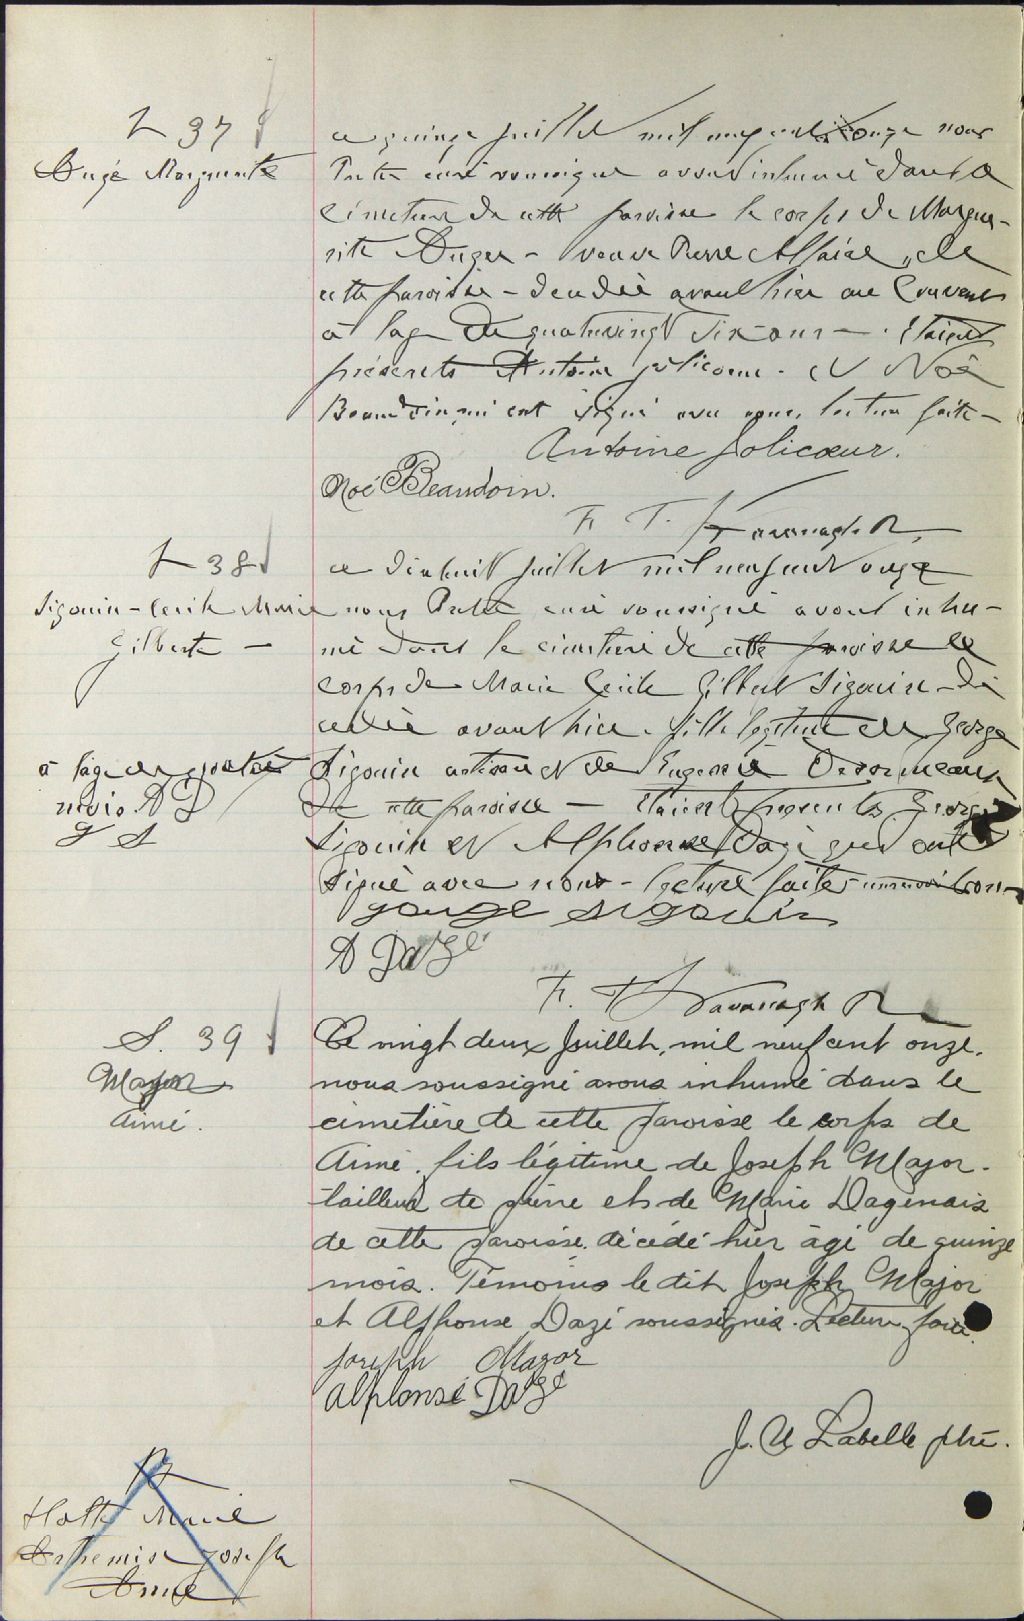 S 37
Augé Marguerite
ce quinze juillet mil neuf cent onze nous
Prêtre curé soussigné avons inhumé dans le
cimetière de cette paroisse le corps de Margue-
rite Auger - veuve Pierre de
cette paroisse - décédée avant hier au Couvent
à l'age de quatrevingt six ans - . Etaient
présents Antoine Jolicoeur . et Noé
Beaudoin qui ont signé avec nous, lecture faite -
Antoine Jolicœur.
Noé Beaudoin.
F. T. Kavanagh
S 38
Sigouin - Cecile Marie
Gilberte -
ce dixhuit juillet mil neuf cent onze
nous Prêtre curé soussigné avons inhu-
mé dans le cimetière de cette paroisse le
corps de Marie Cecile Gilbert Sigouin - dé
cedée avant hier . fille legitime de George
à l'age de quatre
mois. A D
G S
Sigouin artisan et de Eugenie Desormeaux
de cette paroisse - étaient presents George
Sigouin et Alphonse Dazé qui ont
signé avec nous - lecture faite
George Sigouin
A Dazé
F. T. Kavanagh
S. 39
Major
Aimé.
Ce vingt deux Juillet, mil neuf cent onze.
nous soussigné avons inhumé dans le
cimetière de cette paroisse le corps de
Aimé . fils légitime de Joseph Major .
tailleur de pierre et de Marie Dagenais
de cette paroisse. décédé hier âgé de quinze
mois. Témoins le dit Joseph Major
et Alphonse Dazé soussignés. Lecture faite.
Joseph Major
Alphonse Dazé
J. U Labelle ptre.
Marie
Joseph